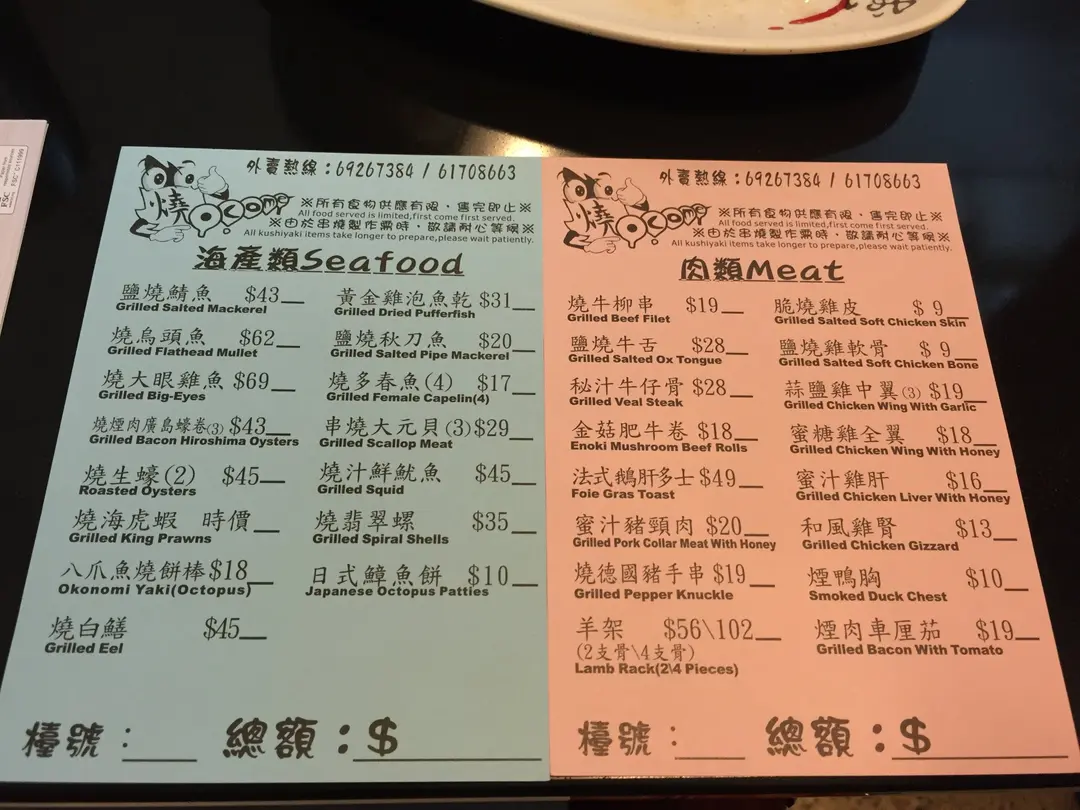 外賣熱線：69267384 / 61708663
燒 Ocomp
※所有食物供應有限，售完即止※
All food served is limited,first come first served.
※由於串燒製作需時，敬請耐心等候※
All kushiyaki items take longer to prepare,please wait patiently.
海產類Seafood
鹽燒鯖魚 $43__
Grilled Salted Mackerel
燒烏頭魚 $62__
Grilled Flathead Mullet
燒大眼雞魚 $69__
Grilled Big-Eyes
燒煙肉廣島蠔卷(3) $43__
Grilled Bacon Hiroshima Oysters
燒生蠔(2) $45__
Roasted Oysters
燒海虎蝦 時價__
Grilled King Prawns
八爪魚燒餅棒$18__
Okonomi Yaki(Octopus)
燒白鱔 $45__
Grilled Eel
黃金雞泡魚乾 $31__
Grilled Dried Pufferfish
鹽燒秋刀魚 $20__
Grilled Salted Pipe Mackerel
燒多春魚(4) $17__
Grilled Female Capelin(4)
串燒大元貝(3)$29__
Grilled Scallop Meat
燒汁鮮魷魚 $45__
Grilled Squid
燒翡翠螺 $35__
Grilled Spiral Shells
日式鱆魚餅 $10__
Japanese Octopus Patties
檯號：____ 總額：$________
外賣熱線：69267384 / 61708663
燒 Ocomp
※所有食物供應有限，售完即止※
All food served is limited,first come first served.
※由於串燒製作需時，敬請耐心等候※
All kushiyaki items take longer to prepare,please wait patiently.
肉類Meat
燒牛柳串 $19__
Grilled Beef Filet
鹽燒牛舌 $28__
Grilled Salted Ox Tongue
秘汁牛仔骨 $28__
Grilled Veal Steak
金菇肥牛卷 $18__
Enoki Mushroom Beef Rolls
法式鵝肝多士$49__
Foie Gras Toast
蜜汁豬頸肉 $20__
Grilled Pork Collar Meat With Honey
燒德國豬手串 $19__
Grilled Pepper Knuckle
羊架 $56\102__
(2支骨\4支骨)
Lamb Rack(2\4 Pieces)
脆燒雞皮 $ 9__
Grilled Salted Soft Chicken Skin
鹽燒雞軟骨 $ 9__
Grilled Salted Soft Chicken Bone
蒜鹽雞中翼(3) $19__
Grilled Chicken Wing With Garlic
蜜糖雞全翼 $18__
Grilled Chicken Wing With Honey
蜜汁雞肝 $16__
Grilled Chicken Liver With Honey
和風雞腎 $13__
Grilled Chicken Gizzard
煙鴨胸 $10__
Smoked Duck Chest
煙肉車厘茄 $19__
Grilled Bacon With Tomato
檯號：____ 總額：$________